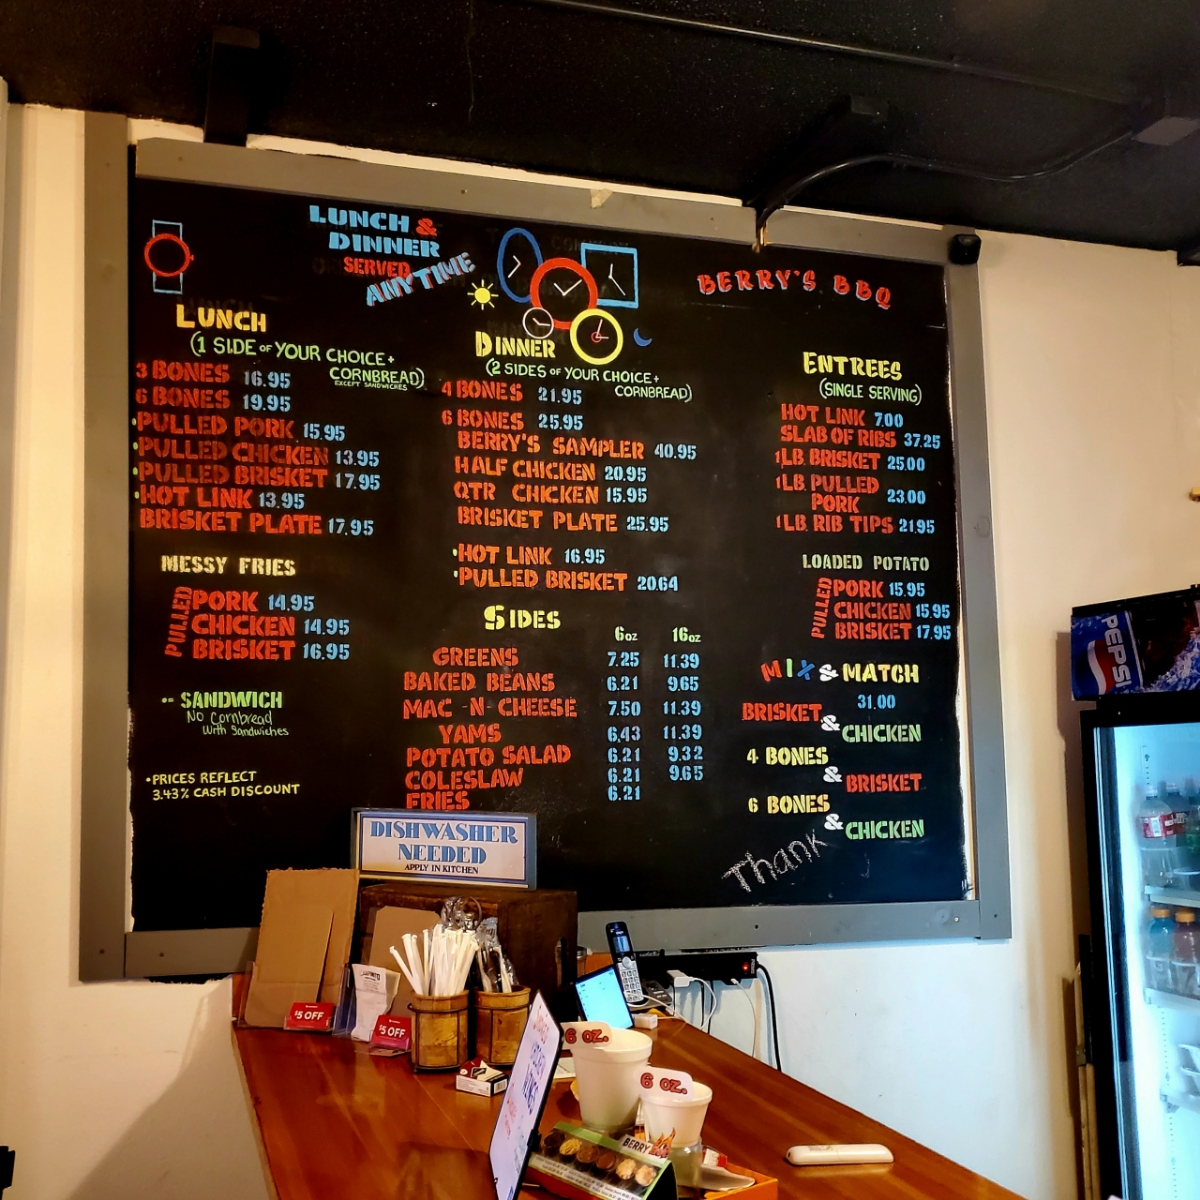 LUNCH &
DINNER
SERVED
ANYTIME
BERRY'S BBQ
LUNCH
(1 SIDE OF YOUR CHOICE +
CORNBREAD)
EXCEPT SANDWICHES
3 BONES 16.95
6 BONES 19.95
•PULLED PORK 15.95
•PULLED CHICKEN 13.95
•PULLED BRISKET 17.95
•HOT LINK 13.95
BRISKET PLATE 17.95
MESSY FRIES
PULLED
PORK 14.95
CHICKEN 14.95
BRISKET 16.95
•• SANDWICH
No Cornbread
With Sandwiches
•PRICES REFLECT
3.43% CASH DISCOUNT
DINNER
(2 SIDES OF YOUR CHOICE +
CORNBREAD)
4 BONES 21.95
6 BONES 25.95
BERRY'S SAMPLER 40.95
HALF CHICKEN 20.95
QTR CHICKEN 15.95
BRISKET PLATE 25.95
•HOT LINK 16.95
•PULLED BRISKET 20.64
SIDES
6oz 16oz
GREENS 7.25 11.39
BAKED BEANS 6.21 9.65
MAC -N- CHEESE 7.50 11.39
YAMS 6.43 11.39
POTATO SALAD 6.21 9.32
COLESLAW 6.21 9.65
FRIES 6.21
ENTREES
(SINGLE SERVING)
HOT LINK 7.00
SLAB OF RIBS 37.25
1LB. BRISKET 25.00
1LB. PULLED
PORK 23.00
1LB. RIB TIPS 21.95
LOADED POTATO
PULLED
PORK 15.95
CHICKEN 15.95
BRISKET 17.95
MIX & MATCH
31.00
BRISKET
&
CHICKEN
4 BONES
&
BRISKET
6 BONES
&
CHICKEN
Thank
DISHWASHER
NEEDED
APPLY IN KITCHEN
PEPSI
$5 OFF
$5 OFF
6 OZ.
6 OZ.
BERRY